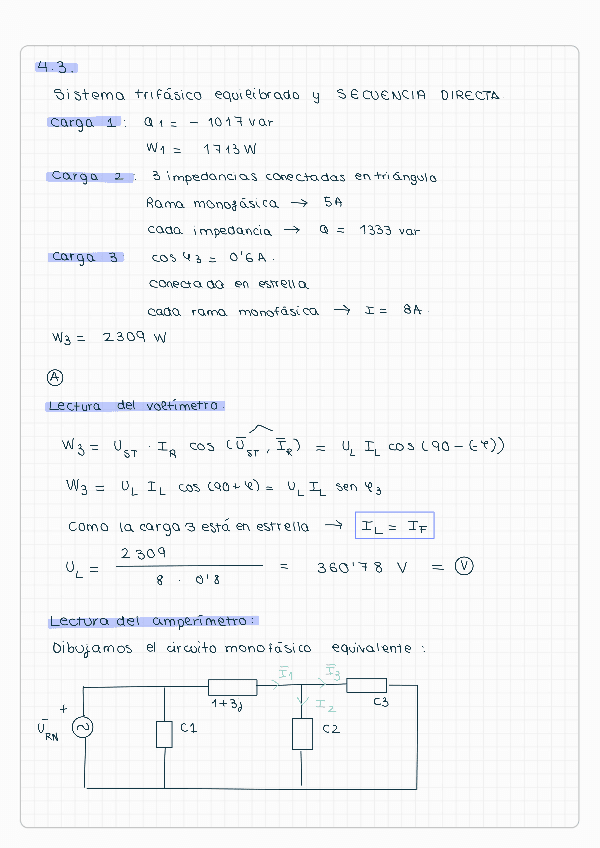 4.3.
Sistema trifásico equilibrado y SECUENCIA DIRECTA
Carga 1: Q1 = - 1017 var
W1 = 1713 W
Carga 2. 3 impedancias conectadas en triángulo
Rama monofásica → 5A
cada impedancia → Q = 1333 var
Carga 3 cos φ3 = 0'6 A.
conectada en estrella
cada rama monofásica → I = 8A.
W3 = 2309 W
A
Lectura del voltímetro.
W3 = U_ST · I_R cos (Ū_ST, Ī_R) = U_L I_L cos (90 - (-φ))
W3 = U_L I_L cos (90+φ) = U_L I_L sen φ3
Como la carga 3 está en estrella → I_L = I_F
U_L = 2309 / 8 · 0'8 = 360'78 V = V
Lectura del amperímetro:
Dibujamos el circuito monofásico equivalente:
Ī1 Ī3
1+3j I2 C3
+
Ū_RN C1 C2